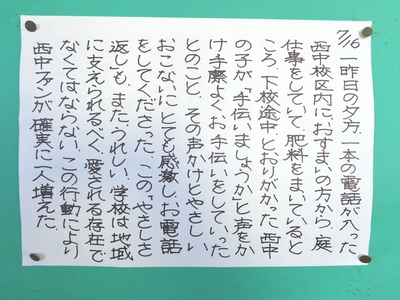 7/16
一昨日の夕方、一本の電話が入った
西中校区内に、おすまいの方から、庭
仕事をしていて、肥料をまいていると
ころ、下校途中、とおりがかった西中
の子が、「手伝いましょうか」と声をか
け手際よくお手伝いをしていった
とのこと。その声かけとやさしい
おこないにとても感激し、お電話
をしてくださった。この、「やさしさ
返し」も、また、うれしい。学校は地域
に支えられるべく、愛される存在で
なくてはならない。この行動により
西中ファンが確実に一人増えた。